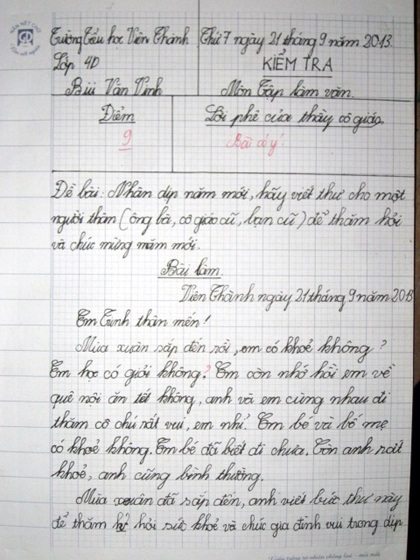 Trường Tiểu học Viên Thành Thứ 7 ngày 21 tháng 9 năm 2013.
Lớp 4D KIỂM TRA
Bùi Văn Vinh Môn Tập làm văn.
Điểm Lời phê của thầy cô giáo
9 Bài có ý!
Đề bài: Nhân dịp năm mới, hãy viết thư cho một
người thân (ông bà, cô giáo cũ, bạn cũ) để thăm hỏi
và chúc mừng năm mới.
Bài làm.
Viên Thành ngày 21 tháng 9 năm 2013
Em Trinh thân mến!
Mùa xuân sắp đến rồi, em có khoẻ không?
Em học có giỏi không? Em còn nhớ hồi em về
quê nội ăn tết không, anh và em cùng nhau đi
thăm cô chú rất vui, em nhỉ. Em bé và bố mẹ
có khoẻ không. Em bé đã biết đi chưa. Còn anh rất
khoẻ, anh cũng bình thường.
Mùa xuân đã sắp đến, anh viết bức thư này
để thăm hỏi sức khoẻ và chúc gia đình vui trong dịp